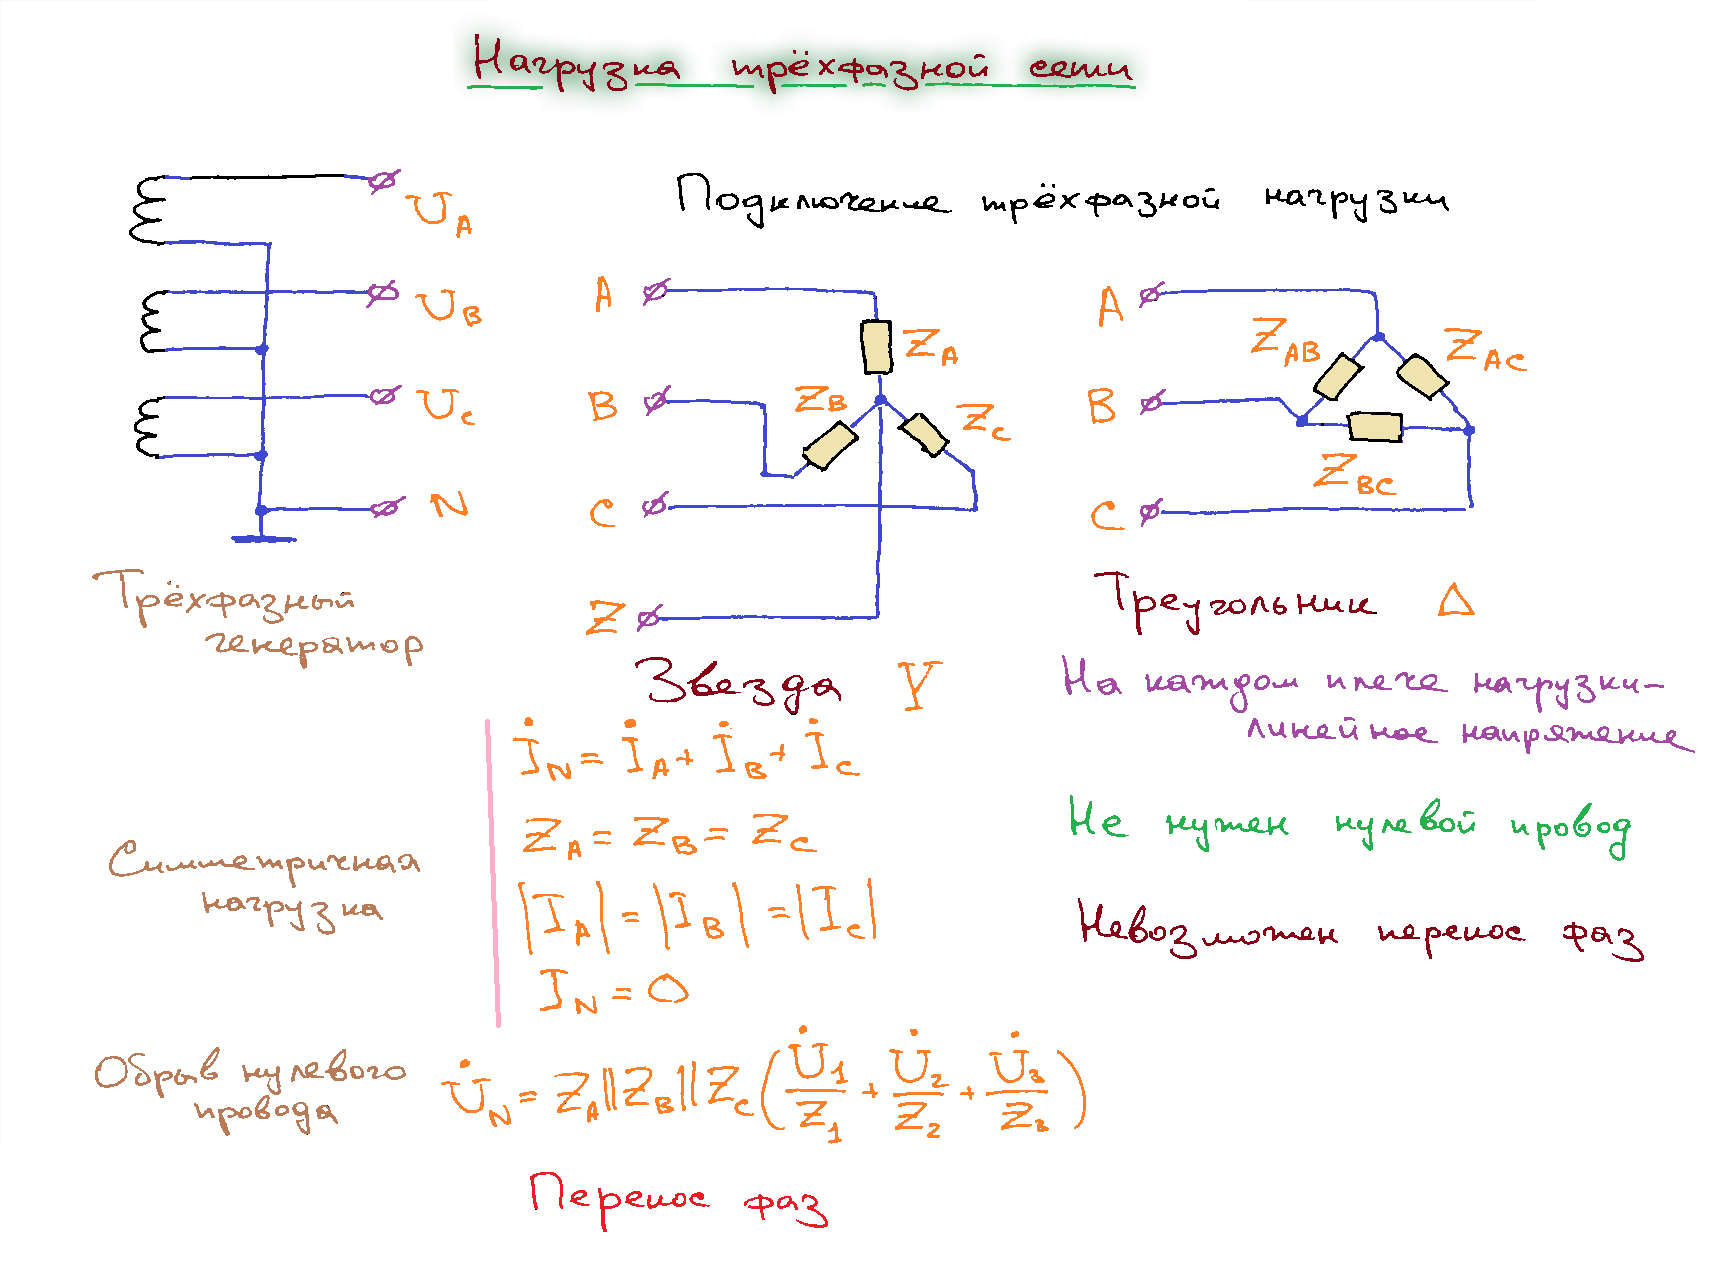 Нагрузка трёхфазной сети
Подключение трёхфазной нагрузки
U_A
U_B
U_C
N
Трёхфазный
генератор
A
B
C
Z
Z_A
Z_B
Z_C
Звезда Y
A
B
C
Z_AB
Z_AC
Z_BC
Треугольник Δ
На каждом плече нагрузки-
линейное напряжение
Не нужен нулевой провод
Невозможен перекос фаз
Симметричная
нагрузка
İ_N = İ_A + İ_B + İ_C
Z_A = Z_B = Z_C
|I_A| = |I_B| = |I_C|
I_N = 0
Обрыв нулевого
провода
U̇_N = Z_A || Z_B || Z_C (U̇_1/Z_1 + U̇_2/Z_2 + U̇_3/Z_3)
Перекос фаз